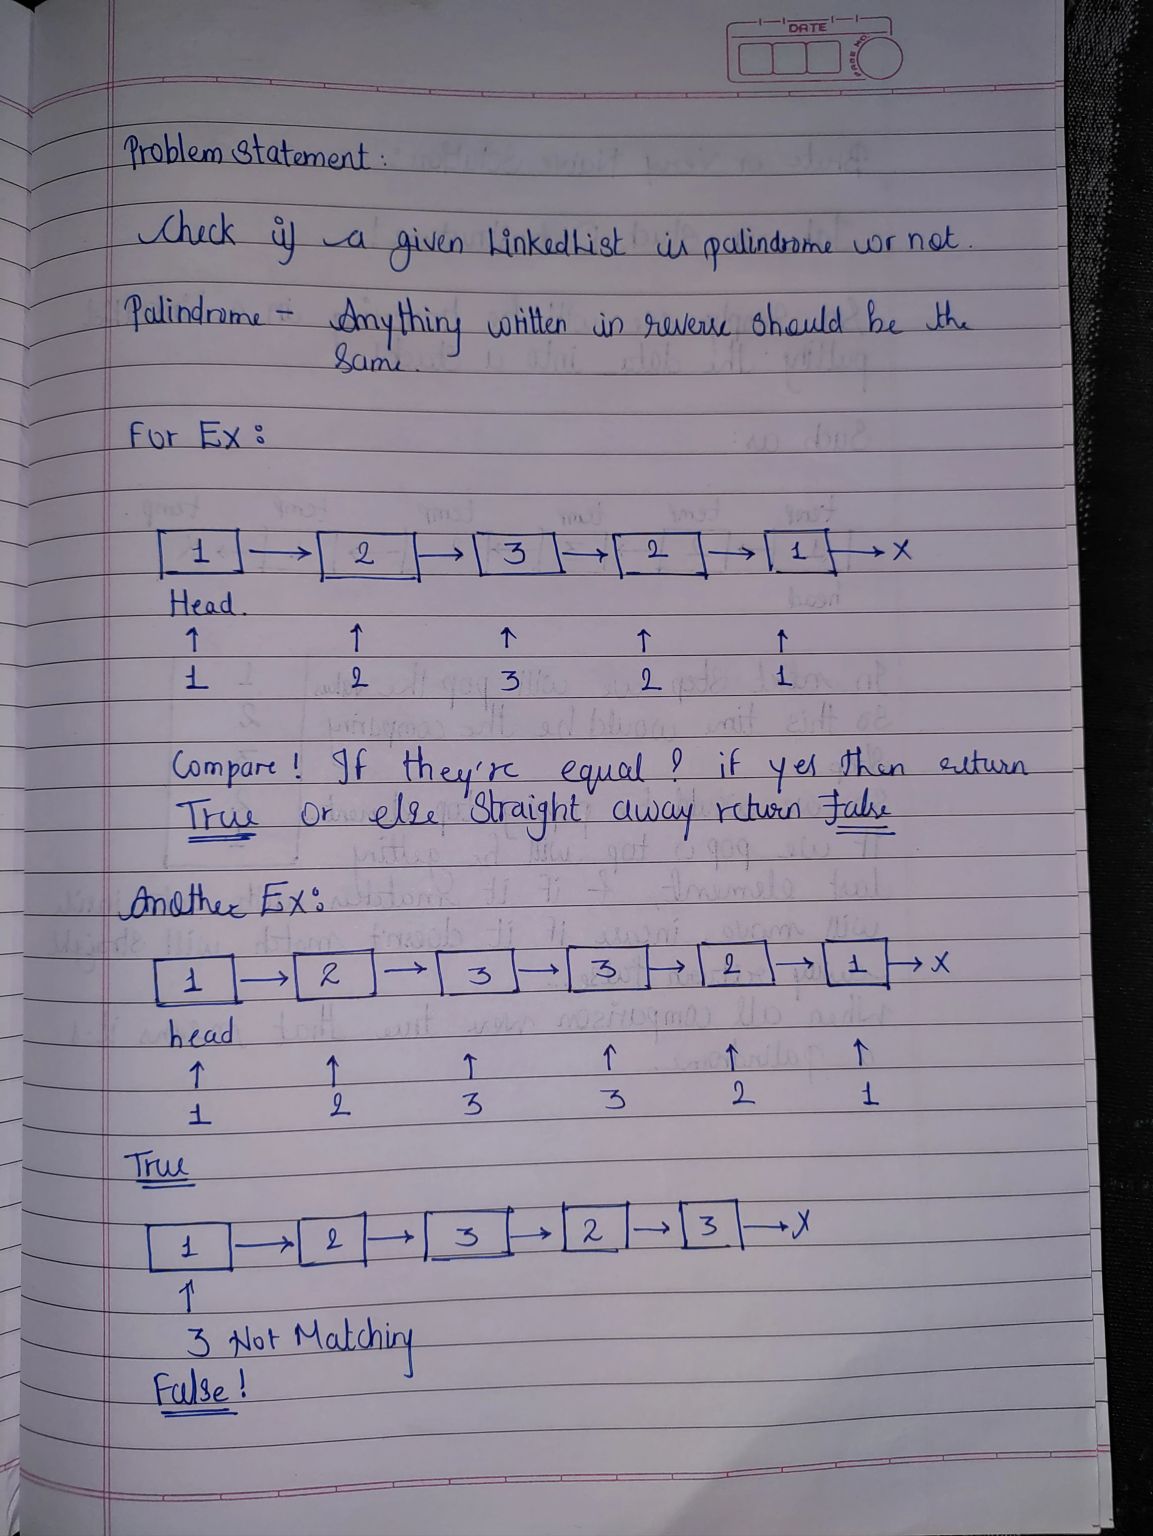 DATE
PAGE NO.
Problem Statement:
Check if a given LinkedList is palindrome or not.
Palindrome - Anything written in reverse should be the
Same.
For Ex:
1 → 2 → 3 → 2 → 1 → X
Head.
↑ ↑ ↑ ↑ ↑
1 2 3 2 1
Compare! If they're equal? if yes then return
True or else Straight away return False
Another Ex:
1 → 2 → 3 → 3 → 2 → 1 → X
head
↑ ↑ ↑ ↑ ↑ ↑
1 2 3 3 2 1
True
1 → 2 → 3 → 2 → 3 → X
↑
3 Not Matching
False!